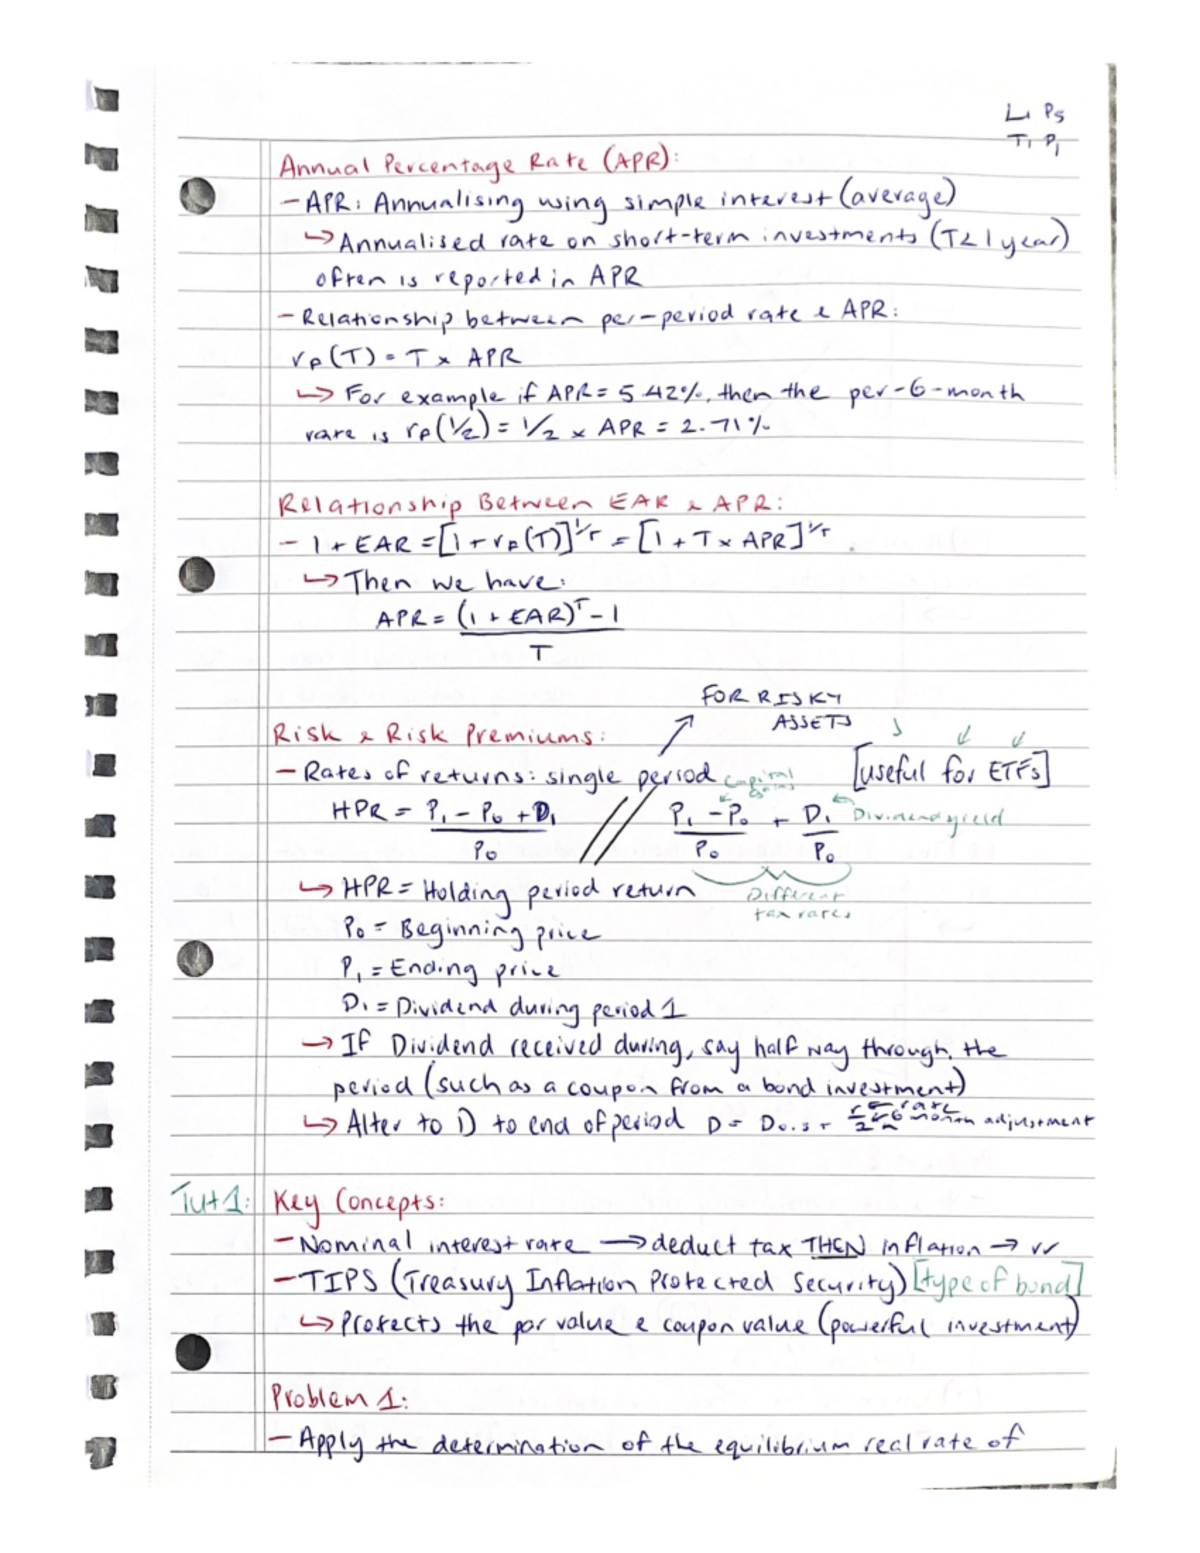 L1 P5
T1 P1
Annual Percentage Rate (APR):
- APR: Annualising using simple interest (average)
↳ Annualised rate on short-term investments (T<1 year)
often is reported in APR
- Relationship between per-period rate & APR:
rₚ(T) = T × APR
↳ For example if APR = 5.42%, then the per-6-month
rate is rₚ(1/2) = 1/2 × APR = 2.71%
Relationship Between EAR & APR:
- 1 + EAR = [1 + rₚ(T)]^1/T = [1 + T × APR]^1/T
↳ Then we have:
APR = (1 + EAR)^T - 1
T
FOR RISKY
ASSETS
Risk & Risk Premiums:
- Rates of returns: single period [useful for ETFs]
Capital gains
HPR = P₁ - P₀ + D₁ // P₁ - P₀ + D₁ Dividend yield
P₀ P₀ P₀
↳ HPR = Holding period return
Different
tax rates
P₀ = Beginning price
P₁ = Ending price
D₁ = Dividend during period 1
→ If Dividend received during, say half way through, the
period (such as a coupon from a bond investment)
↳ Alter to D to end of period D = D₀.₅ + month adjustment
Tut 1: Key Concepts:
- Nominal interest rate → deduct tax THEN inflation → rr
- TIPS (Treasury Inflation Protected Security) [type of bond]
↳ Protects the par value & coupon value (powerful investment)
Problem 1:
- Apply the determination of the equilibrium real rate of